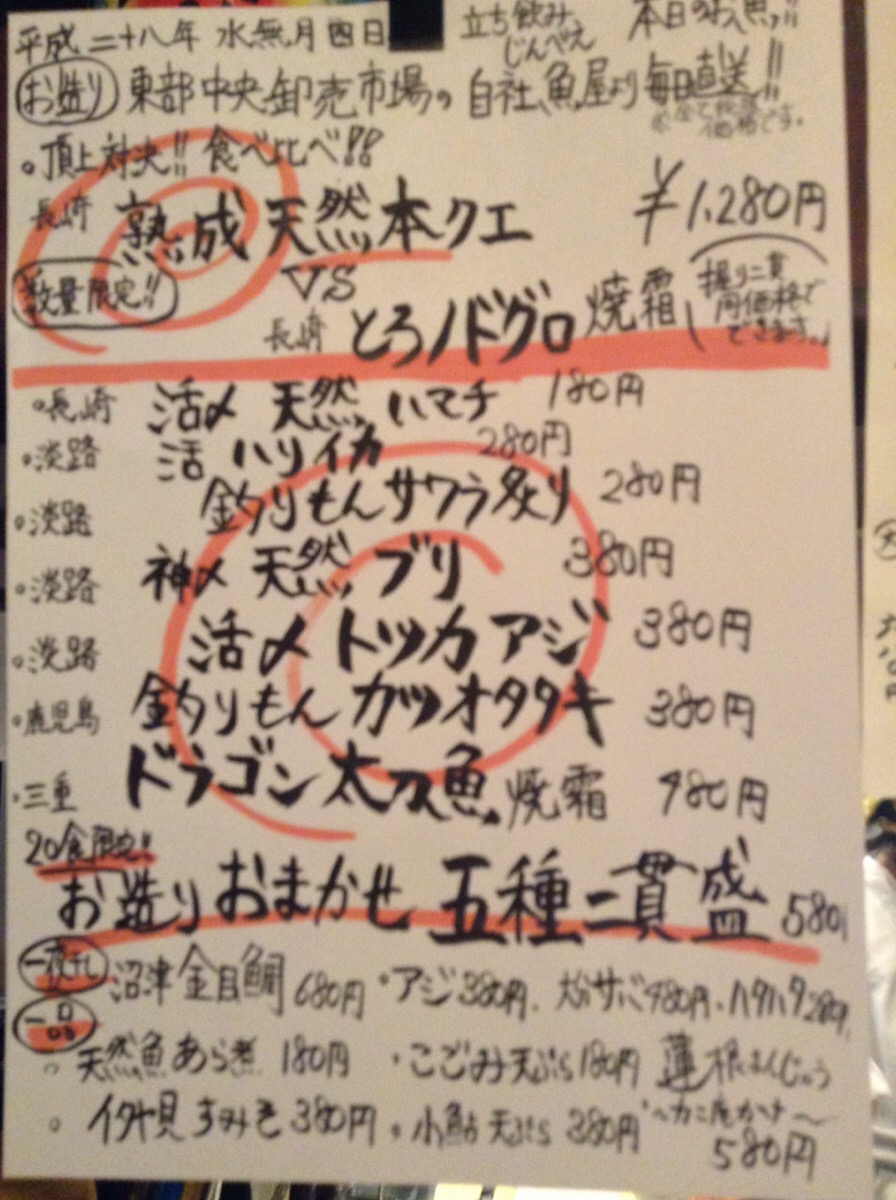 平成二十八年 水無月四日
立ち飲み じんべえ
本日のお魚!!
お造り 東部中央卸売市場の自社魚屋より毎日直送!!
価格です。
・頂上対決!! 食べ比べ!!
長崎 熟成天然本クエ ¥1,280円
数量限定!!
VS
長崎 とろノドグロ焼霜
握り二貫 同価格で できます。
・長崎 活〆 天然 ハマチ 180円
・淡路 活 ハリイカ 280円
・淡路 釣りもんサワラ炙り 280円
・淡路 神〆 天然 ブリ 380円
・淡路 活〆 トツカアジ 380円
・鹿児島 釣りもん カツオタタキ 380円
・三重 ドラゴン太刀魚 焼霜 480円
20食限定!!
お造りおまかせ 五種二貫盛 580
一夜干し 沼津金目鯛 680円 ・アジ380円、サバ480円、ハタハタ280円
一品
天然魚あら煮 180円 ・こごみ天ぷら180円 蓮根まんじゅう
〜カニ庵かけ〜
・イタヤ貝 380円 ・小鮎天ぷら 380円 580円